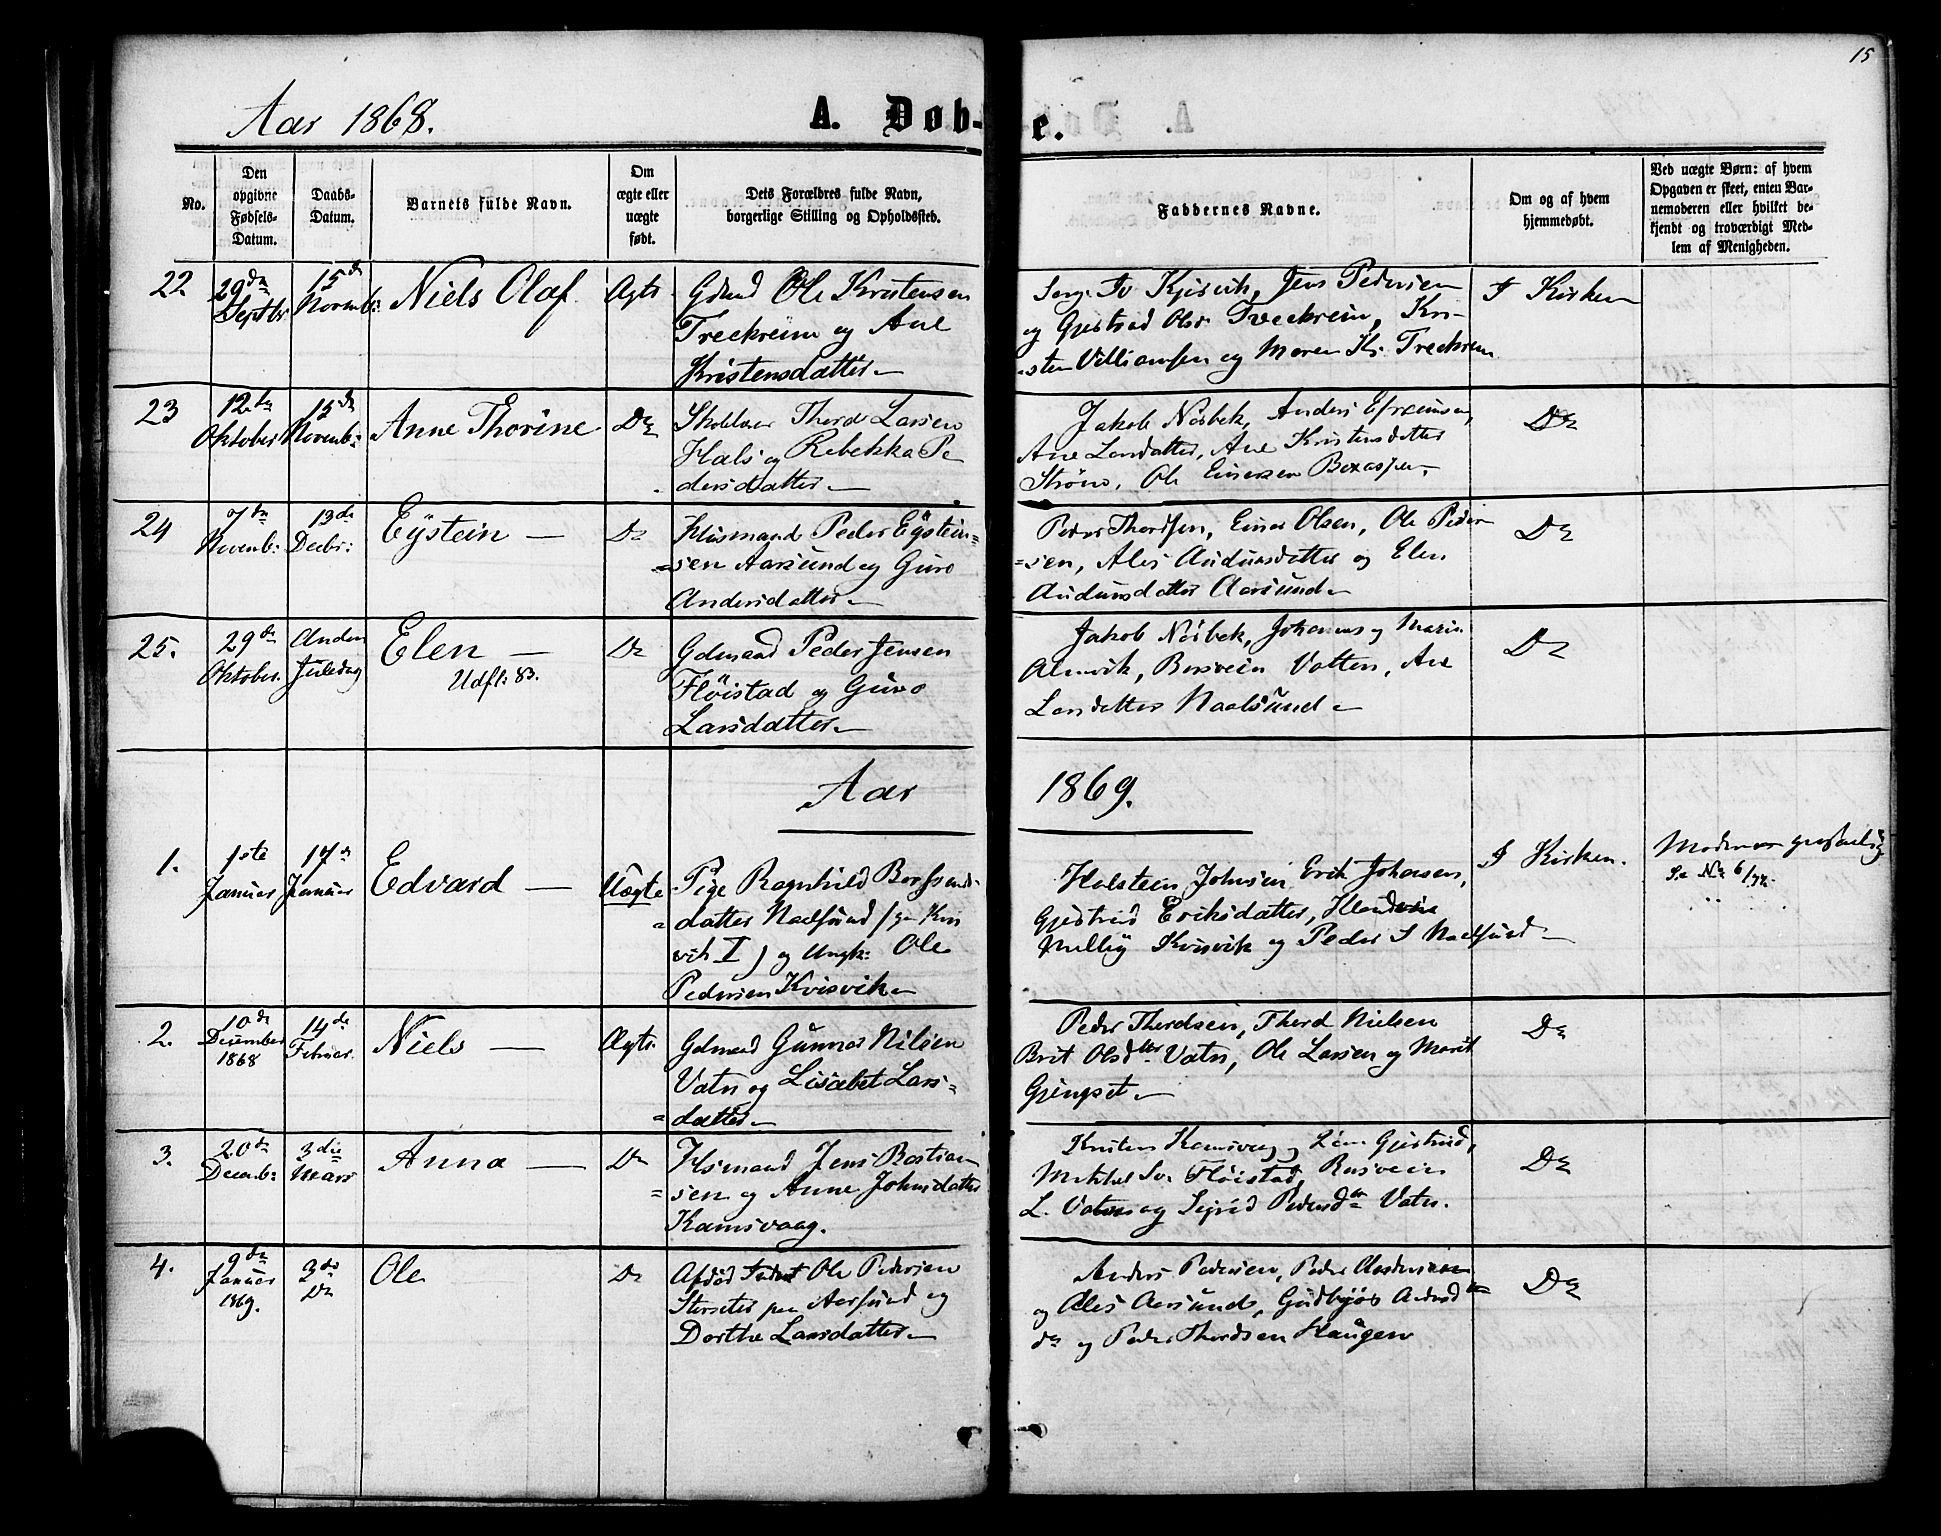 15
Aar 1868.
A. Døb-
e.
No.
Den opgivne Fødsels-Datum.
Daabs-Datum.
Barnets fulde Navn.
Om ægte eller uægte født.
Dets Forældres fulde Navn, borgerlige Stilling og Opholdssted.
Faddernes Navne.
Om og af hvem hjemmedøbt.
Ved uægte Børn: af hvem Opgaven er skeet, enten Barnemoderen eller hvilket bekjendt og troværdigt Medlem af Menigheden.
22
29de Septbr
15de Novemb:
Niels Olaf
Ægte
Gdmd Ole Kristensen
Treekrem og Ane
Kristensdatter
Iv Kjisvik, Jens Pedersen
og Gjertrud Olsd Treekrem, Kri-
sten Villiamsen og Maren Kr. Treekrem
I Kirken
23
12te Oktober
15de Novemb:
Anne Thorine
Do
Skolelærer Thord Larsen
Hals og Rebekka Pe
dersdatter
Jakob Nørbek, Anders Efraimsen,
Ane Larsdatter, Ane Kristensdatter
Strøm, Ole Einersen Boxaspen
Do
24
7de Novemb:
13de Decbr:
Eÿstein
Do
Husmand Peder Eÿstein=
=sen Aarsund og Guro
Andersdatter
Peder Thordsen, Einer Olsen, Ole Peder
=sen, Ales Audunsdatter og Elen
Audunsdatter Aarsund
Do
25.
29de Oktober.
Anden Juledag
Elen
Udfl: 83.
Do
Gdmand Peder Jensen
Fløistad og Guro
Larsdatter
Jakob Nørbek, Johannes og Marie
Almvik, Basvein Vatten, Ane
Larsdatter Naalsund
Do
Aar
1869.
1.
1ste Januar
17de Januar
Edvard
Uægte
Pige Ragnhild
datter Naalsund (
vik I) og Ungk: Ole
Pedersen Kvisvik
Holstein Johnsen, Erik Johansen,
Gjertrud Eriksdatter,
Kvisvik og Peder I Naalsund
I Kirken.
Moderen
Se No 6/
2.
10de December 1868
14de Februar
Niels
Ægte
Gdmand Gunner Nilsen
Vatn og Lisabet Lars=
=datter
Peder Thordsen, Thord Nielsen
Brit Olsdtter Vatn, Ole Larsen og Marit
Gjengset
Do
3.
20de Decemb:
3die Mars
Anna
Do
Husmand Jens Bastian
=sen og Anne Johnsdatter
Ramsvaag.
Kristen Ramsvaag og Gjertrud,
Mikkel Iv. Fløistad, Rasvein
L. Vatn og Sigrid Pedersdtr Vatn.
Do
4.
9de Januar 1869.
3die Do
Ole
Do
Afdød Ole Pedersen
Storseter paa Aarsund og
Dorthe Larsdatter
Anders Pedersen, Peder Andersen
og Ales Aarsund, Gudbjør
Do og Peder Thordsen Haugen
Do